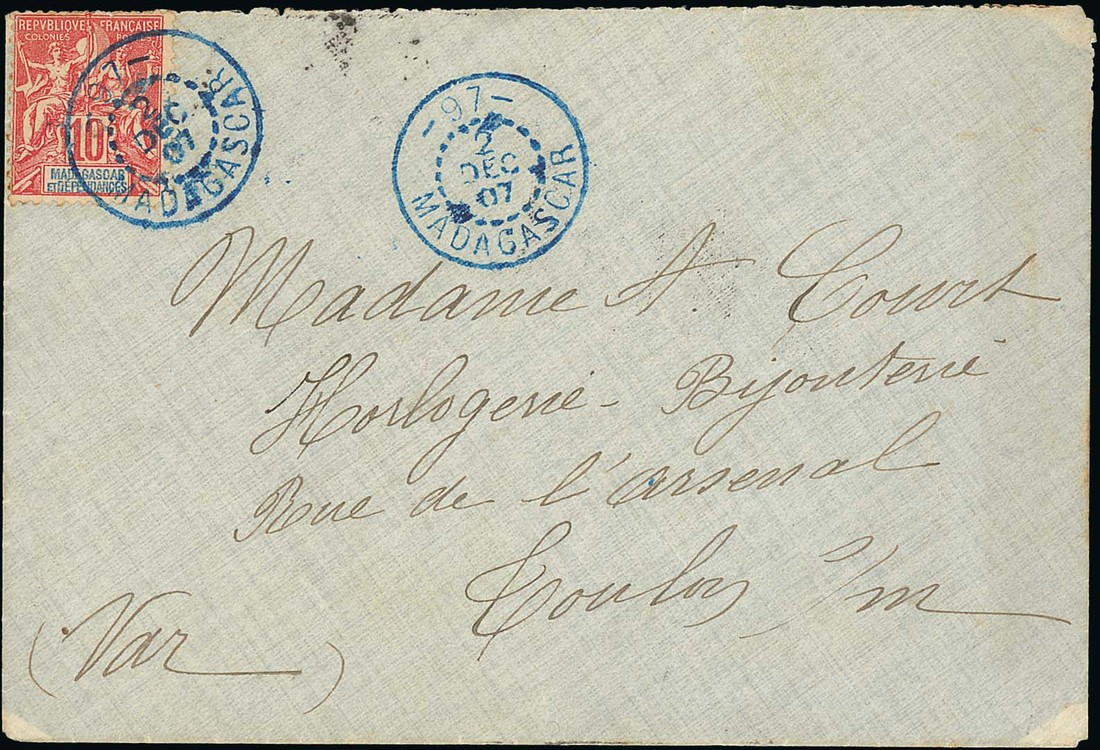 REPVBLIQVE FRANÇAISE
COLONIES
10
MADAGASCAR
ET DÉPENDANCES
-97-
2
DEC
07
MADAGASCAR
-97-
2
DEC
07
MADAGASCAR
Madame A. Court
Horlogerie - Bijouterie
Rue de l'arsenal
Toulon s/m
(Var)